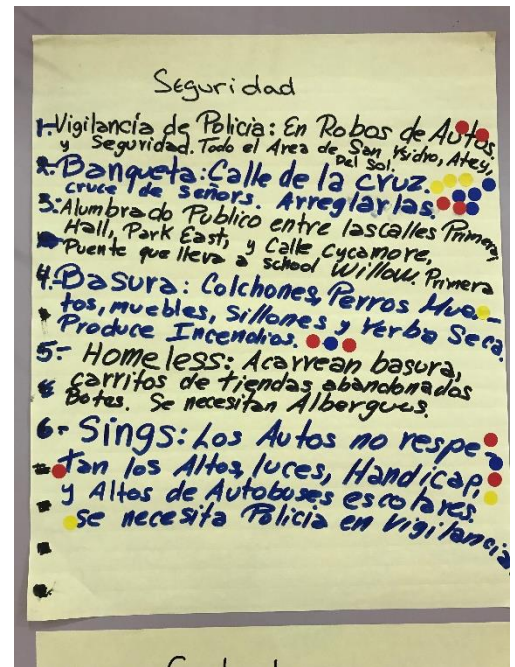 Seguridad
1-Vigilancia de Policia: En Robos de Autos
y Seguridad. Todo el Area de San Ysidro, Atey,
Del Sol.
2-Banqueta: Calle de la cruz.
cruce de Señors. Arreglarlas.
3-Alumbrado Publico entre las calles Primera,
Hall, Park East, y Calle Cycamore,
Puente que lleva a school Willow. Primera
4-Basura: Colchones, Perros Muer-
tos, muebles, Sillones y Yerba Seca.
Produce Incendios.
5- Homeless: Acarrean basura,
carritos de tiendas abandonados
Botes. Se necesitan Albergues.
6- Sings: Los Autos no respe-
tan los Altos, luces, Handicap,
y Altos de Autobuses escolares.
se necesita Policia en Vigilancia.